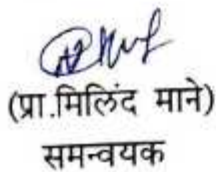 (प्रा.मिलिंद माने)
समन्वयक